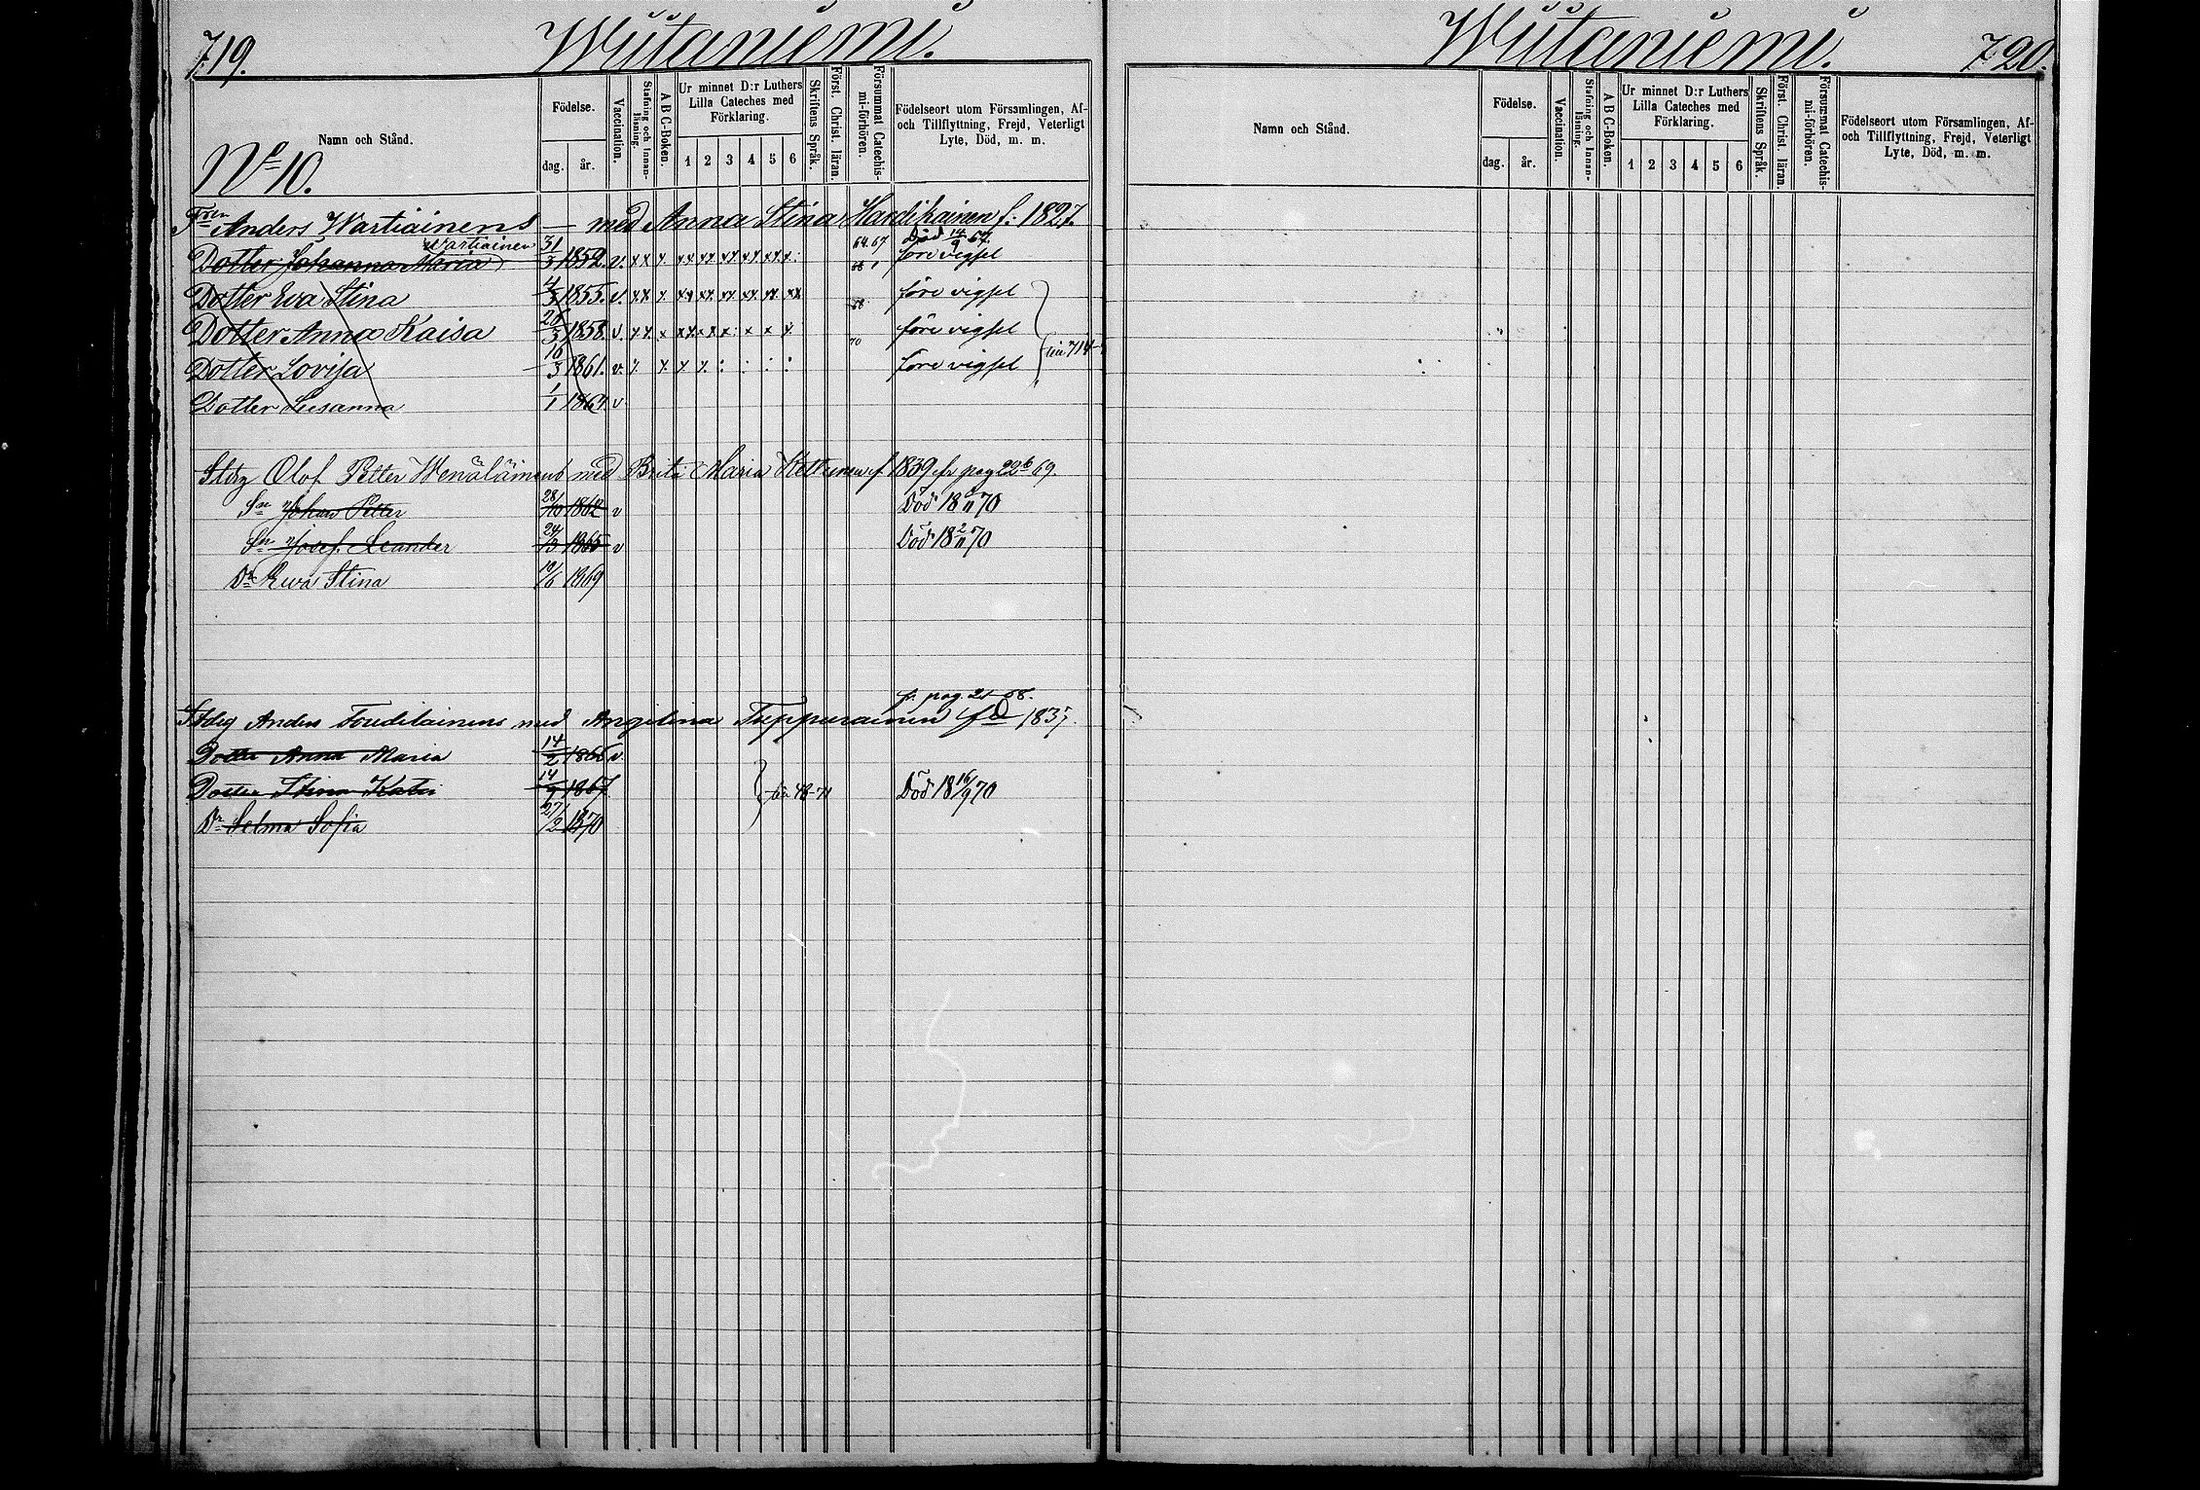 719. Wiitaniemi.
Namn och Stånd.
Födelse.
dag. år.
Vaccination.
Stafning och Innanläsning.
A B C-Boken.
Ur minnet D:r Luthers Lilla Cateches med Förklaring.
1 2 3 4 5 6
Skriftens Språk.
Först. Christ. läran.
Försummat Catechismi-förhören.
Födelseort utom Församlingen, Af- och Tillflyttning, Frejd, Veterligt Lyte, Död, m. m.
No 10.
Anders Wartiainens — med Anna Stina Hardikainen f: 1827.
Wartiainen
Dotter Johanna Maria 31/3 1852. v. x x x xx xx xx xx xx x. 64. 67 Död 14/9 67. före vigsel
Dotter Eva Stina 4/3 1855. v. x x x xx xx xx xx xx xx 68 före vigsel
Dotter Anna Kaisa 26/3 1858. v. x x x xx x x x x x x 70 före vigsel
Dotter Lovisa 16/3 1861. v. x x x x : : : : före vigsel
Dotter Susanna 1/1 v
Olof Petter Wenäläinens med Brita Maria Kettunen f 1839 fr pag 22b 69.
Sn Johan Petter 28/10 1862 v Död 18 70
Sn Josef Leander 24/3 1865 v Död 18 2/11 70
Dr Ewa Stina 10/6 1869
fr. pag. 21 68.
Anders med Angelina Tuppurainen 183
Dotter Anna Maria 14/2 1865 v.
Dotter Stina 14 1867. Död 18 16/9 70
Dr Selma Sofia 27/2 1870
720. Wiitaniemi.
Namn och Stånd.
Födelse.
dag. år.
Vaccination.
Stafning och Innanläsning.
A B C-Boken.
Ur minnet D:r Luthers Lilla Cateches med Förklaring.
1 2 3 4 5 6
Skriftens Språk.
Först. Christ. läran.
Försummat Catechismi-förhören.
Födelseort utom Församlingen, Af- och Tillflyttning, Frejd, Veterligt Lyte, Död, m. m.